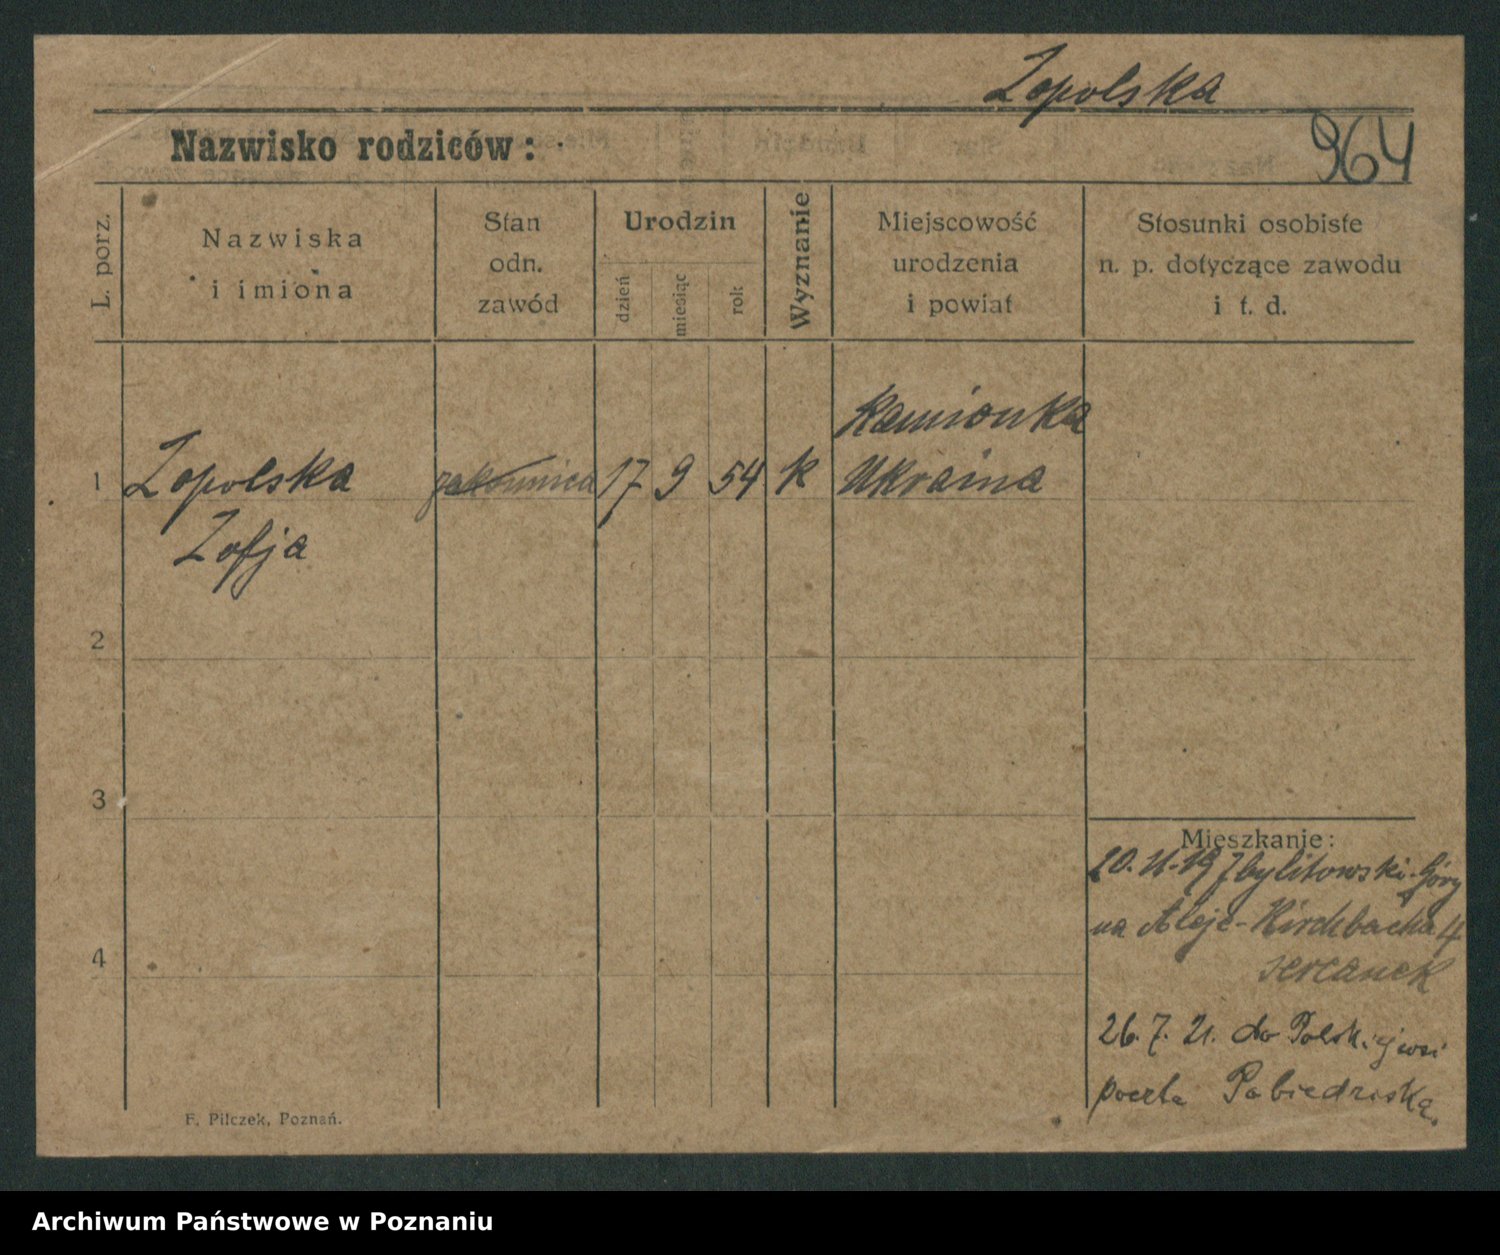 Zopolska
Nazwisko rodziców:
964
L. porz.
Nazwiska
i imiona
Stan
odn.
zawód
Urodzin
dzień
miesiąc
rok
Wyznanie
Miejscowość
urodzenia
i powiat
Stosunki osobiste
n. p. dotyczące zawodu
i t. d.
Kamionka
1 Zopolska zakonnica 17 9 54 k Ukraina
Zofja
2
3
Mieszkanie:
20. 11. 19 Zbylitowski-Góry
na Aleje-Hirchbacha 4
sercanek
4
26. 7. 21. do Polskiejwsi
poczta Pobiedziska.
F. Pilczek, Poznań.
Archiwum Państwowe w Poznaniu